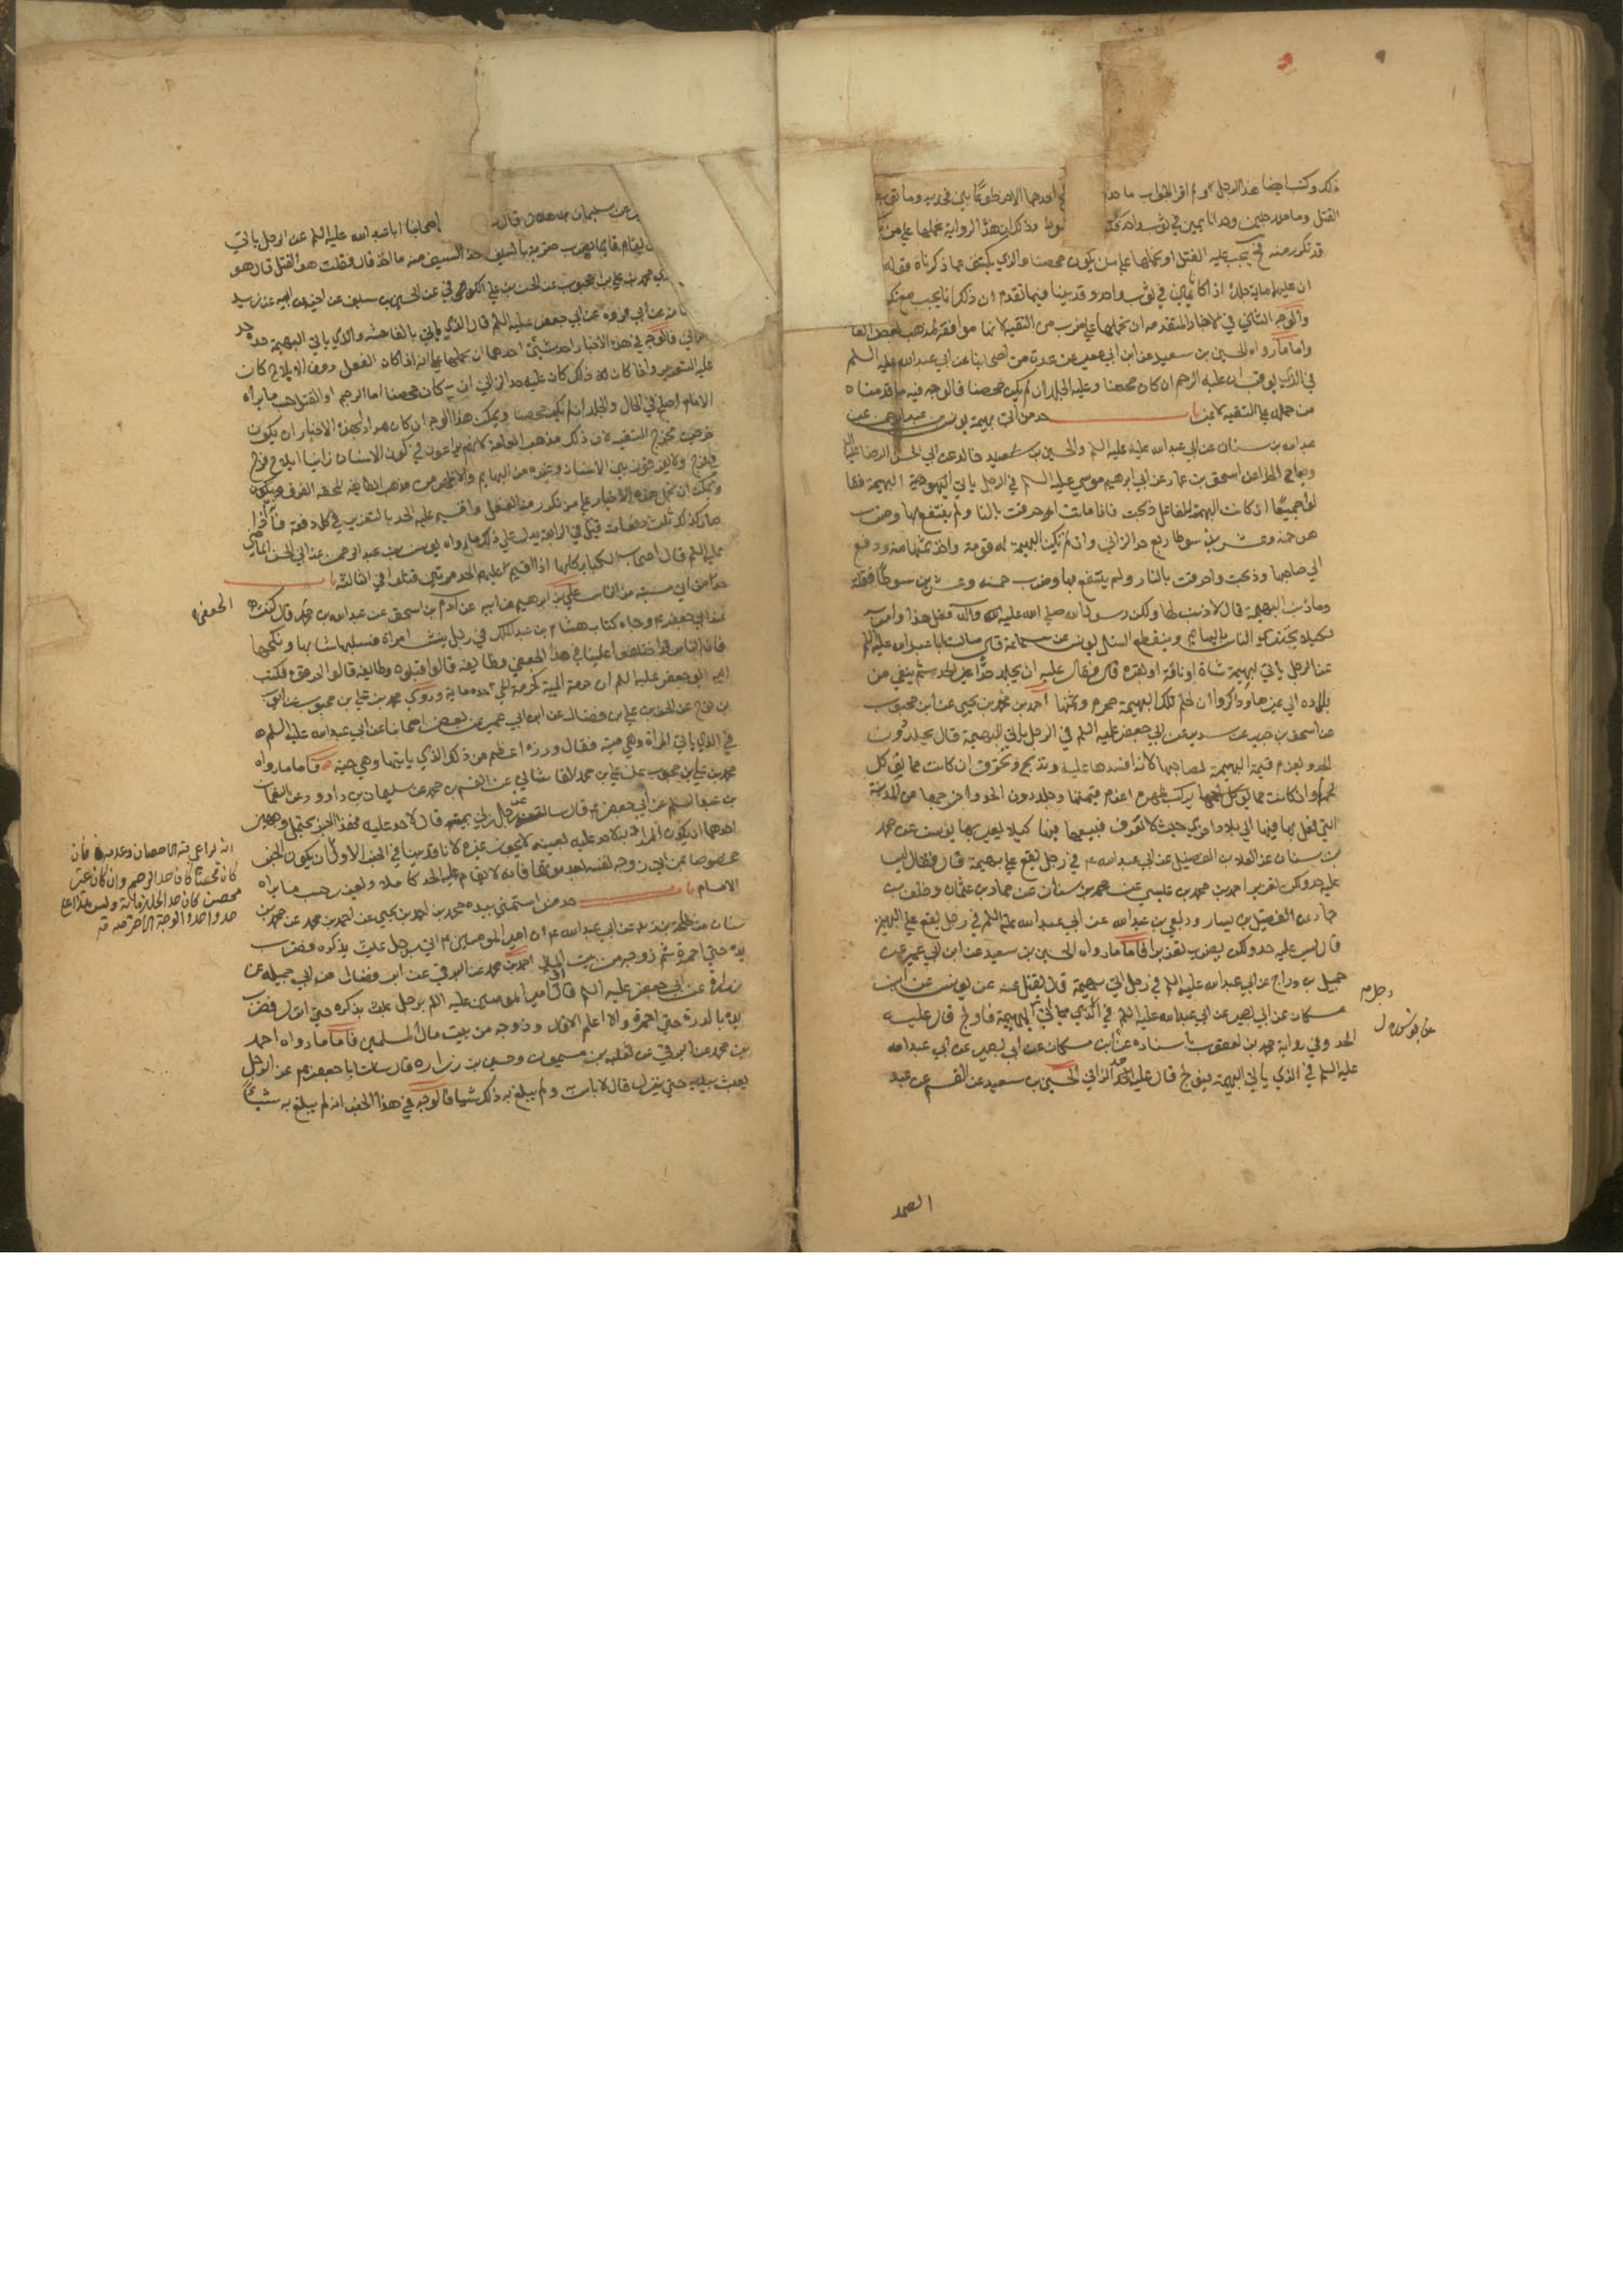 ذلك وكتب ايضا هذا الرجل ولم اقرأ الجواب ما حد احدهما الاخر طوعا بين فخذيه وما توبته
القتل وما حد رجلين وجدا نايمين في ثوب واحد سوطا وذكر ان هذه الرواية نحملها على من
قد تكرر منه فح يجب عليه القتل او نحملها على من يكون محصنا والذي يكشف عما ذكرناه قوله
ان عليهما ماية جلدة اذا كانا نايمين في ثوب واحد وقد بينا فيما تقدم ان ذلك انما يجب مع
والوجه الثاني في الاخبار المتقدمة ان نحملها على ضرب من التقية لانها موافقة لمذهب بعض العا
واما ما رواه الحسين بن سعيد عن ابن ابي عمير عن عدة من اصحابنا عن ابي عبد الله عليه السلم
في الذي يوقب ان عليه الرجم ان كان محصنا وعليه الجلد ان لم يكن محصنا فالوجه فيه ما قدمناه
من حمله على التقية لا غير باب حد من اتى بهيمة يونس بن عبد الرحمن عن
عبد الله بن سنان عن ابي عبد الله عليه السلم والحسين بن خالد عن ابي الحسن الرضا عليه
وصباح الحذا عن اسحق بن عمار عن ابي ابرهيم موسى عليه السلم في الرجل ياتي البهيمة فقا
لوا جميعا ان كانت البهيمة للفاعل ذبحت فاذا ماتت احرقت بالنار ولم ينتفع بها وضرب
هو خمسة وعشرين سوطا ربع حد الزاني وان لم تكن البهيمة له قومت واخذ ثمنها منه ودفع
الى صاحبها وذبحت واحرقت بالنار ولم ينتفع بها وضرب خمسة وعشرين سوطا فقلت
وما ذنب البهيمة قال لا ذنب لها ولكن رسول الله صلى الله عليه وآله فعل هذا وامر به
لكيلا يجتزي الناس بالبهايم وينقطع النسل يونس عن سماعة قال سالت ابا عبد الله عليه السلم
عن الرجل ياتي بهيمة شاة او ناقة او بقرة قال فقال عليه ان يجلد حدا غير الحد ثم ينفى من
بلاده الى غيرها وذكروا ان لحم تلك البهيمة محرم وثمنها احمد بن محمد بن يحيى عن ابن محبوب
عن اسحق بن جرير عن سدير عن ابي جعفر عليه السلم في الرجل ياتي البهيمة قال يجلد دون
الحد ويغرم قيمة البهيمة لصاحبها لانه افسدها عليه وتذبح وتحرق ان كانت مما يؤكل
لحمه وان كانت مما يركب ظهره اغرم قيمتها وجلد دون الحد واخرجها من المدينة
التي فعل بها فيها الى بلاد اخرى حيث لا تعرف فيبيعها فيها كيلا يعير بها يونس عن محمد
بن سنان عن العلاء بن الفضيل عن ابي عبد الله ع في رجل يقع على بهيمة قال فقال ليس
عليه حد ولكن تعزير احمد بن محمد بن عيسى عن محمد بن سنان عن حماد بن عثمان وخلف بن
حماد عن الفضيل بن يسار وربعي بن عبد الله عن ابي عبد الله عليه السلم في رجل يقع على البهيمة
قال ليس عليه حد ولكن يضرب تعزيرا فاما ما رواه الحسين بن سعيد عن ابن ابي عمير عن
جميل بن دراج عن ابي عبد الله عليه السلم في رجل اتى بهيمة قال يقتل عنه عن يونس عن ابن
مسكان عن ابي بصير عن ابي عبد الله عليه السلم في الذي ياتي البهيمة فاولج قال عليه
الحد وفي رواية محمد بن يعقوب باسناده عن ابن مسكان عن ابي بصير عن ابي عبد الله
عليه السلم في الذي ياتي البهيمة فيولج قال عليه حد الزاني الحسين بن سعيد عن القسم عن عبد
رجل م
الصمد
عن سليمان بن هلال قال اصحابنا ابا عبد الله عليه السلم عن الرجل ياتي
يقام قايما ثم يضرب ضربة بالسيف اخذ السيف منه ما اخذ قال فقلت هو القتل قال هو
محمد بن علي بن محبوب عن الحسن بن علي الكوفي عن الحسين بن سيف عن اخيه عن ابيه عن زيد
عن ابي فروة عن ابي جعفر عليه السلم قال الذي ياتي بالفاحشة والذي ياتي البهيمة حده حد
الزاني فالوجه في هذه الاخبار احد شيئين احدهما ان نحملها على انه اذا كان الفعل دون الايلاج كان
عليه التعزير واذا كان كذلك كان عليه حد الزاني ان كان محصنا اما الرجم او القتل حسب ما يراه
الامام اصلح في الحال والجلد ان لم يكن محصنا ويمكن هذا الوجه ان كان مرادا بهذه الاخبار ان يكون
خرجت مخرج التقية لان ذلك مذهب العامة لانهم يراعون في كون الانسان زانيا ايلاج فرج
في فرج ولا يفرقون بين الانسان وغيره من البهايم والاظهر من مذهب الطايفة المحقة الفرق
ويمكن ان نحمل هذه الاخبار على من تكرر منه الفعل واقيم عليه الحد بالتعزير في كل دفعة
صار كذلك ثلث دفعات قتل في الرابعة يدل على ذلك ما رواه يونس بن عبد الرحمن عن ابي الحسن الماضي
عليه السلم قال اصحاب الكباير كلها اذا اقيم عليهم الحد مرتين قتلوا في الثالثة باب
حد من اتى ميتة من الناس علي بن ابرهيم عن ابيه عن آدم بن اسحق عن عبد الله بن محمد قال كنت
الجعفي
عند ابي جعفر ع وجاه كتاب هشام بن عبد الملك في رجل نبش امراة فسلبها ثيابها ونكحها
فان الناس قد اختلفوا علينا في هذا المعنى وطايفة قالوا اقتلوه وطايفة قالوا احرقوه فكتب
اليه ابو جعفر عليه السلم ان حرمة الميت كحرمة الحي حده ماية وروى محمد بن علي بن محبوب عن ايوب
بن نوح عن الحسن بن علي بن فضال عن ابن ابي عمير عن بعض اصحابنا عن ابي عبد الله عليه السلم
في الذي ياتي المراة وهي ميتة فقال وزره اعظم من ذلك الذي ياتيها وهي حية فاما ما رواه
محمد بن علي بن محبوب عن علي بن محمد القاشاني عن القسم بن محمد عن سليمان بن داوود عن النعمان
بن عبد السلم عن ابي حنيفة قال سالته عن رجل زنى بميتة قال لا حد عليه فهذا الخبر يحتمل وجهين
احدهما ان يكون المراد لا حد عليه بعينه لا يجوز غيره لانا قد بينا في الخبر الاول
انه يراعى فيه الاحصان وعدمه فان
كان محصنا كان حده الرجم وان كان غير
محصن كان حده الجلد ماية وليس هذا على
حد واحد والوجه الآخر فيه
ان يكون الخبر
مخصوصا بمن اتى زوجة نفسه بعد موتها فانه لا يقام عليه الحد كاملا ويعزر حسب ما يراه
الامام باب حد من استمنى بيده محمد بن احمد بن يحيى عن احمد بن محمد عن محمد بن
سنان عن طلحة بن زيد عن ابي عبد الله ع ان امير المؤمنين ع اتي برجل عبث بذكره فضرب
يده حتى احمرت ثم زوجه من بيت المال احمد بن محمد عن البرقي عن ابن فضال عن ابي جميلة عن
زرارة عن ابي جعفر عليه السلم قال اتي امير المؤمنين عليه السلم برجل عبث بذكره حتى انزل فضرب
يده بالدرة حتى احمرت ولا اعلم الا قال وزوجه من بيت مال المسلمين فاما ما رواه احمد
بن محمد عن البرقي عن ثعلبة بن ميمون وحسين بن زرارة قال سالت ابا جعفر ع عن الرجل
يعبث بيديه حتى ينزل قال لا باس ولم يبلغ به ذلك شيئا فالوجه في هذا الخبر انه لم يبلغ به شيئا